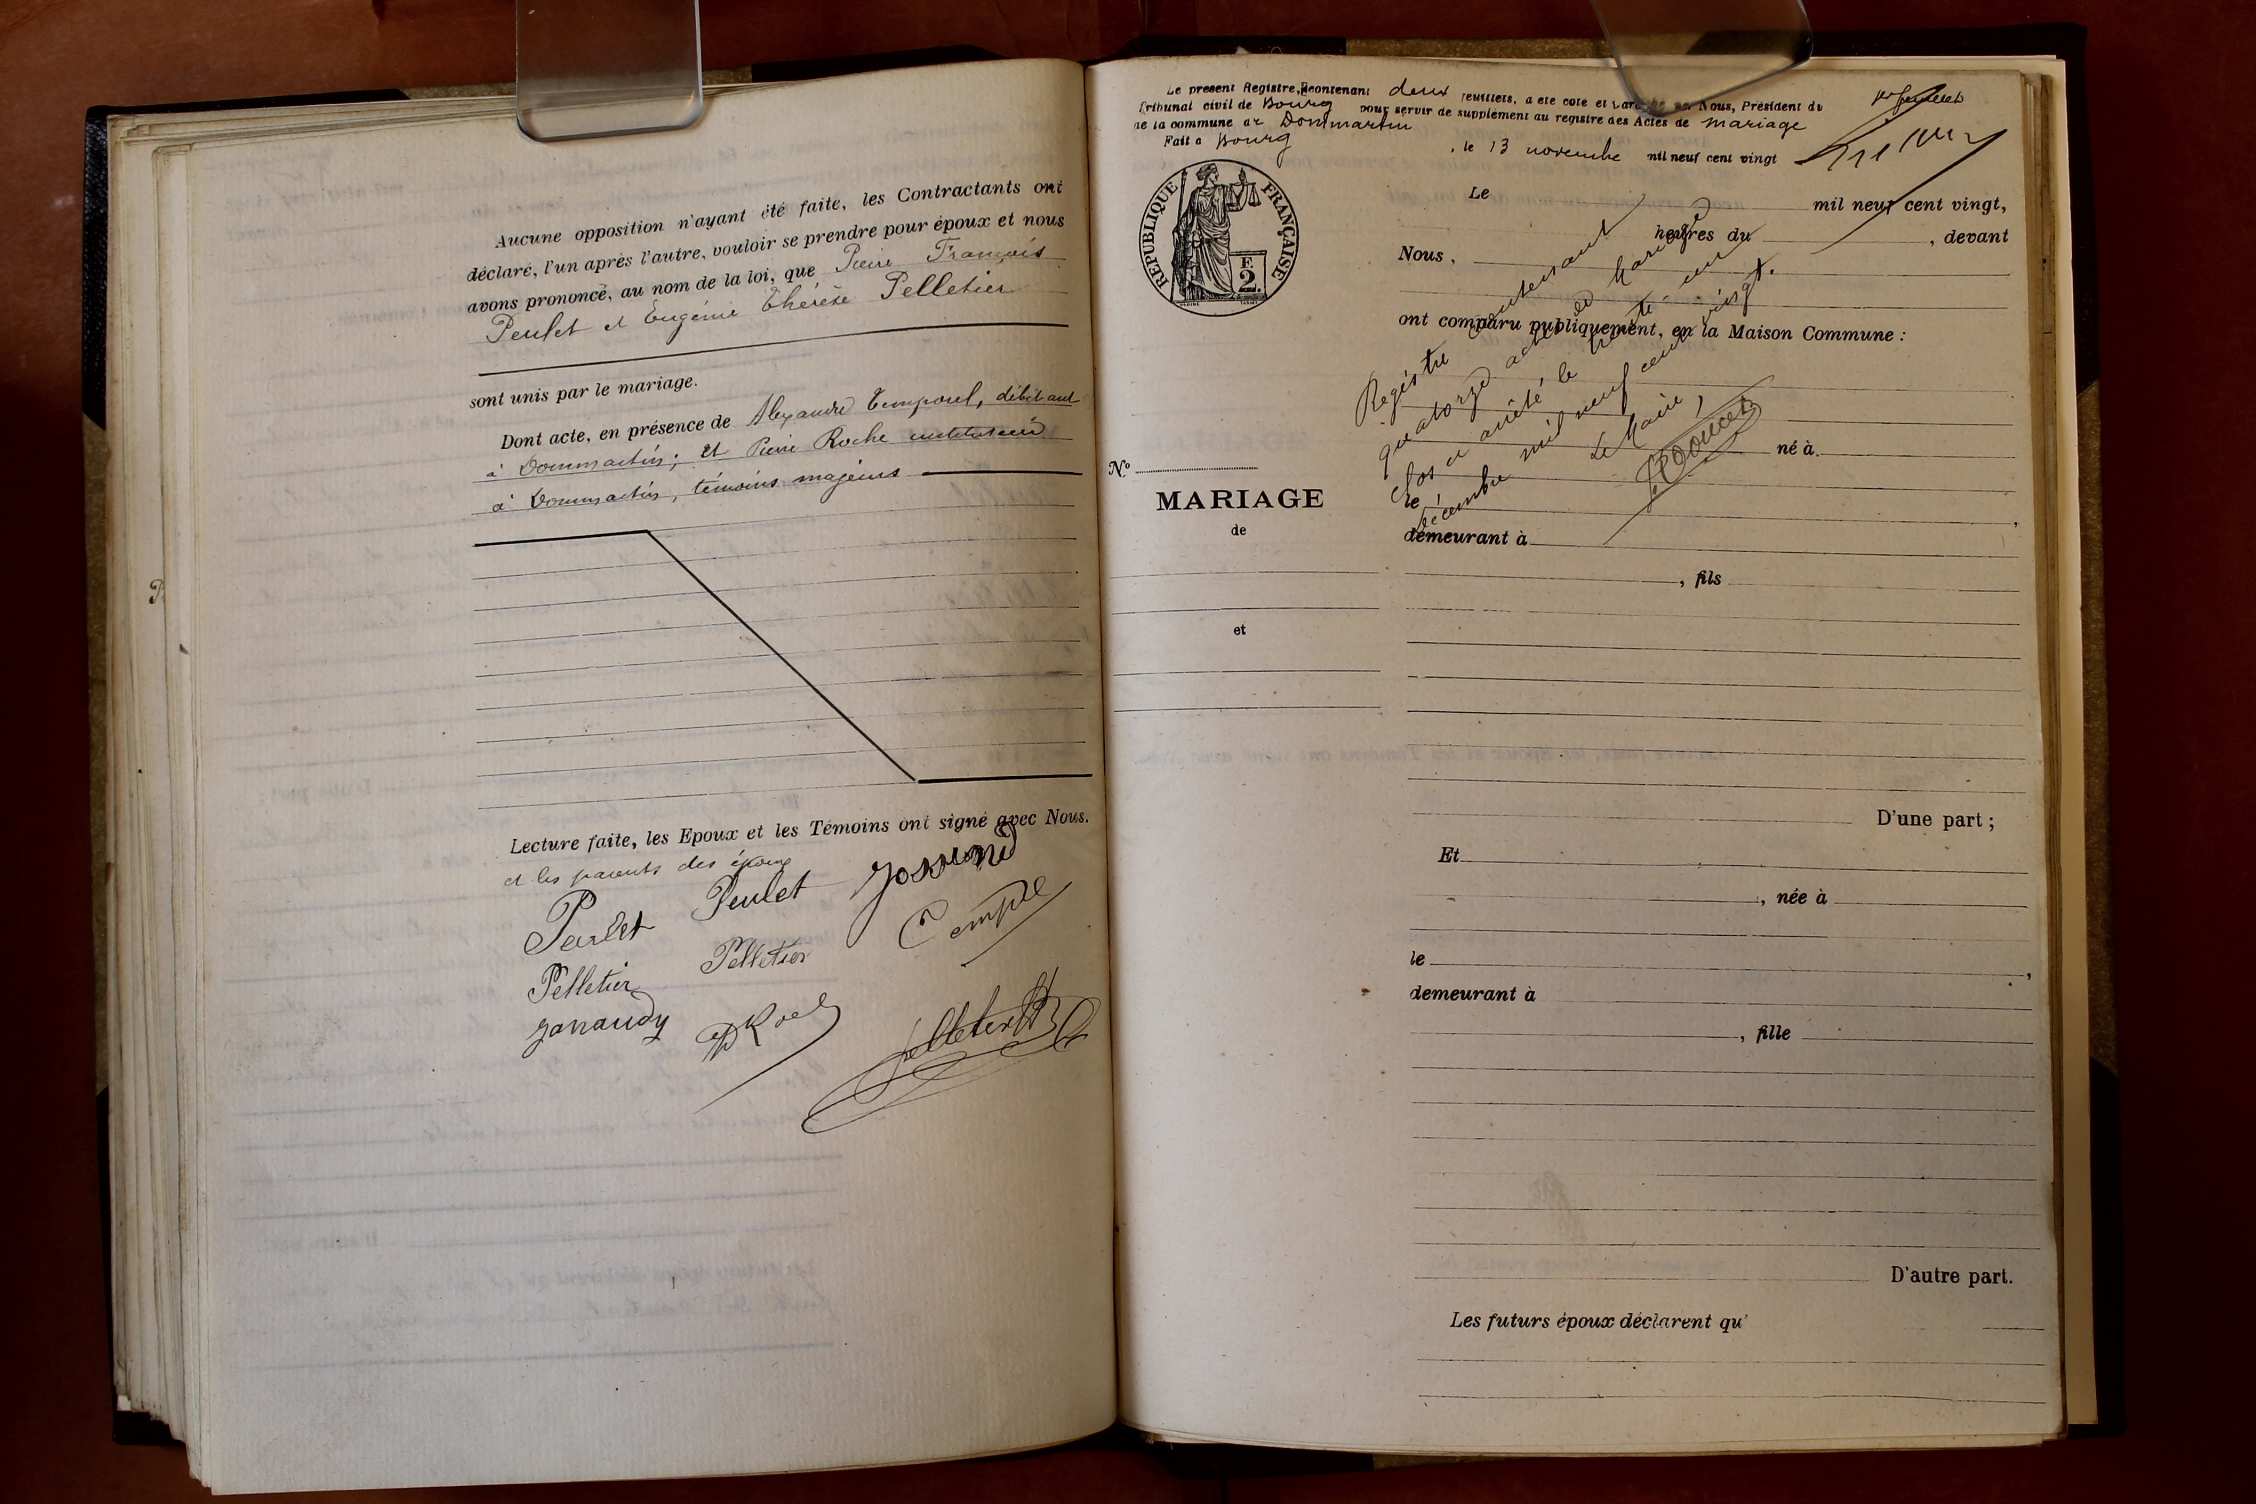 Aucune opposition n'ayant été faite, les Contractants ont
déclaré, l'un après l'autre, vouloir se prendre pour époux et nous
avons prononcé, au nom de la loi, que Pierre François
Peulet et Eugénie Thérèse Pelletier
sont unis par le mariage.
Dont acte, en présence de Alexandre Temporel, débitant
à Dommartin; et Pierre Roche instituteur
à Dommartin, témoins majeurs
Lecture faite, les Epoux et les Témoins ont signé avec Nous.
et les parents des époux
Peulet Peulet
Pelletier Pelletier
Janaudy
Le présent Registre, contenant deux feuillets, a été coté et par Nous, Président du
Tribunal civil de Bourg pour servir de supplément au registre des Actes de mariage
de la commune de Dommartin
Fait à Bourg, le 13 novembre mil neuf cent vingt
RÉPUBLIQUE FRANÇAISE
F.
2.
Le mil neuf cent vingt,
heures du , devant
Nous,
ont comparu publiquement, en la Maison Commune :
Registre contenant
quatorze actes de Mariage
clos et arrêté le trente-un
décembre mil neuf cent vingt.
Le Maire,
N°
MARIAGE
de
et
né à
le ,
demeurant à
, fils
D'une part ;
Et
, née à
le ,
demeurant à
, fille
D'autre part.
Les futurs époux déclarent qu'